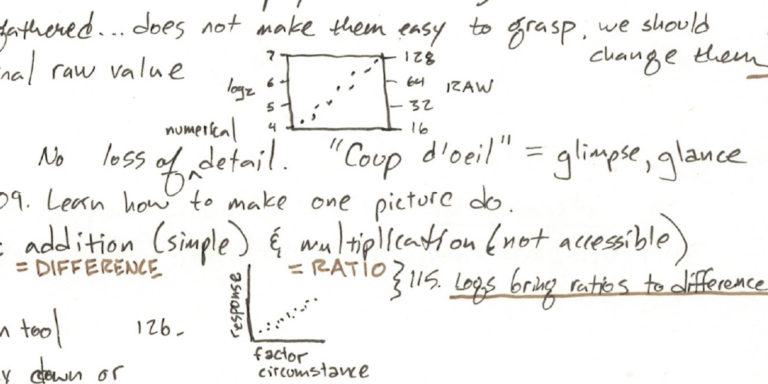 gathered... does not make them easy to grasp, we should
change them
nal raw value
7 128
log2 6 64 RAW
5 32
4 16
numerical
No loss of detail. "Coup d'oeil" = glimpse, glance
09. Learn how to make one picture do.
: addition (simple) & multiplication (not accessible)
= DIFFERENCE = RATIO } 115. Logs bring ratios to difference
response
n tool 126.
factor
y down or circumstance